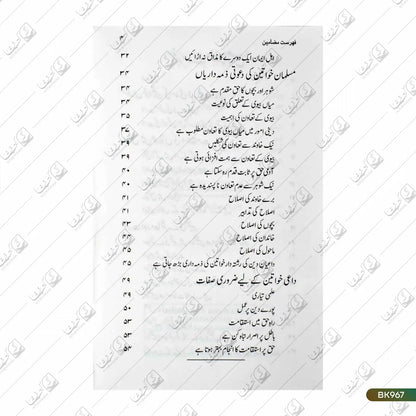 فہرست مضامین ۴
اہل ایمان ایک دوسرے کا مذاق نہ اڑائیں ۳۲
مسلمان خواتین کی دعوتی ذمہ داریاں ۳۴
شوہر اور بچوں کا حق مقدم ہے ۳۴
میاں بیوی کے تعلق کی نوعیت ۳۴
بیوی کے تعاون کی اہمیت ۳۵
دینی امور میں میاں بیوی کا تعاون مطلوب ہے ۳۷
نیک خاوند سے تعاون کی شکلیں ۳۹
بیوی کے تعاون سے ہمت افزائی ہوتی ہے ۳۹
آدمی حق پر ثابت قدم رہ سکتا ہے ۴۰
نیک شوہر سے عدم تعاون ناپسندیدہ ہے ۴۰
برے خاوند کی اصلاح ۴۱
اصلاح کی تدابیر ۴۱
بچوں کی اصلاح ۴۳
خاندان کی اصلاح ۴۴
ماحول کی اصلاح ۴۵
داعیان دین کی رشتہ دار خواتین کی ذمہ داری بڑھ جاتی ہے ۴۵
داعی خواتین کے لیے ضروری صفات ۴۹
علمی تیاری ۴۹
پورے دین پر عمل ۵۰
راہ حق میں استقامت ۵۳
باطل پر اصرار تباہ کن ہے ۵۳
حق پر استقامت کا انجام بہتر ہوتا ہے ۵۴
BK967